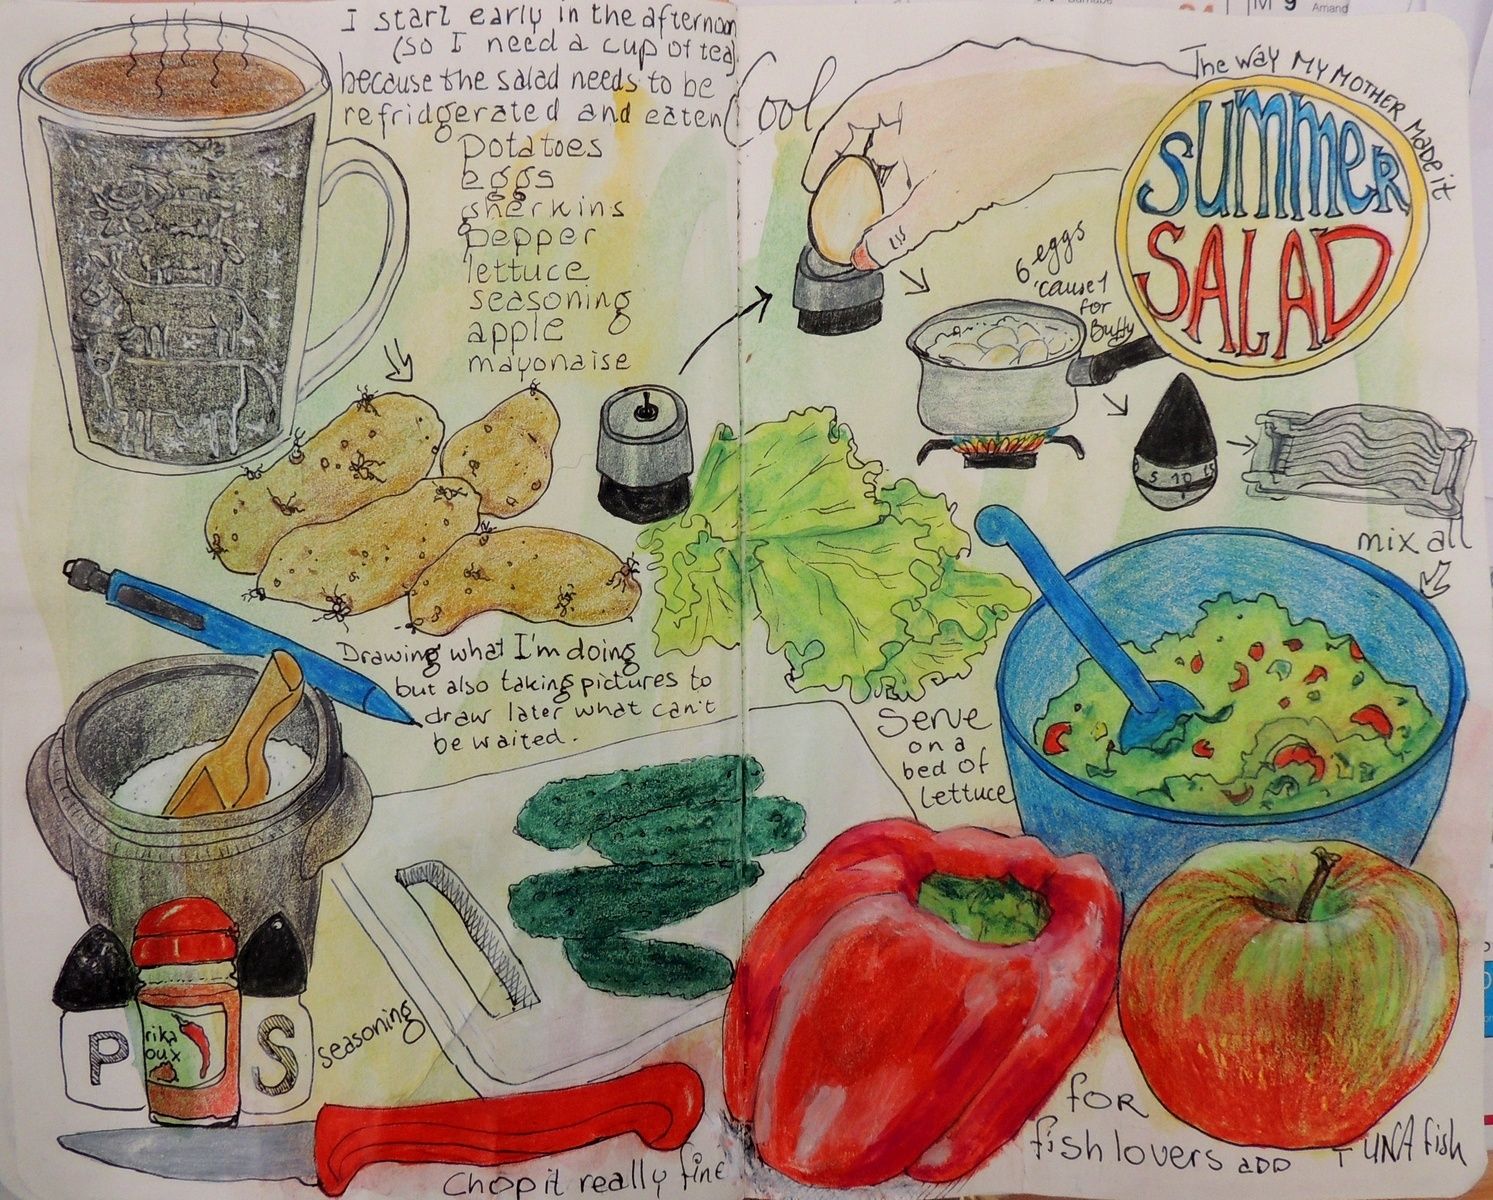 I start early in the afternoon
(so I need a cup of tea)
because the salad needs to be
refridgerated and eaten Cool
potatoes
eggs
gherkins
pepper
lettuce
seasoning
apple
mayonaise
The way MY MOTHER Made it
SUMMER
SALAD
6 eggs
'cause 1
for
Buffy
0 5 10 15
mix all
Drawing what I'm doing
but also taking pictures to
draw later what can't
be waited.
Serve
on a
bed of
lettuce
P
rika
oux
S
seasoning
Chop it really fine
for
fish lovers ADD TUNA fish
Amand